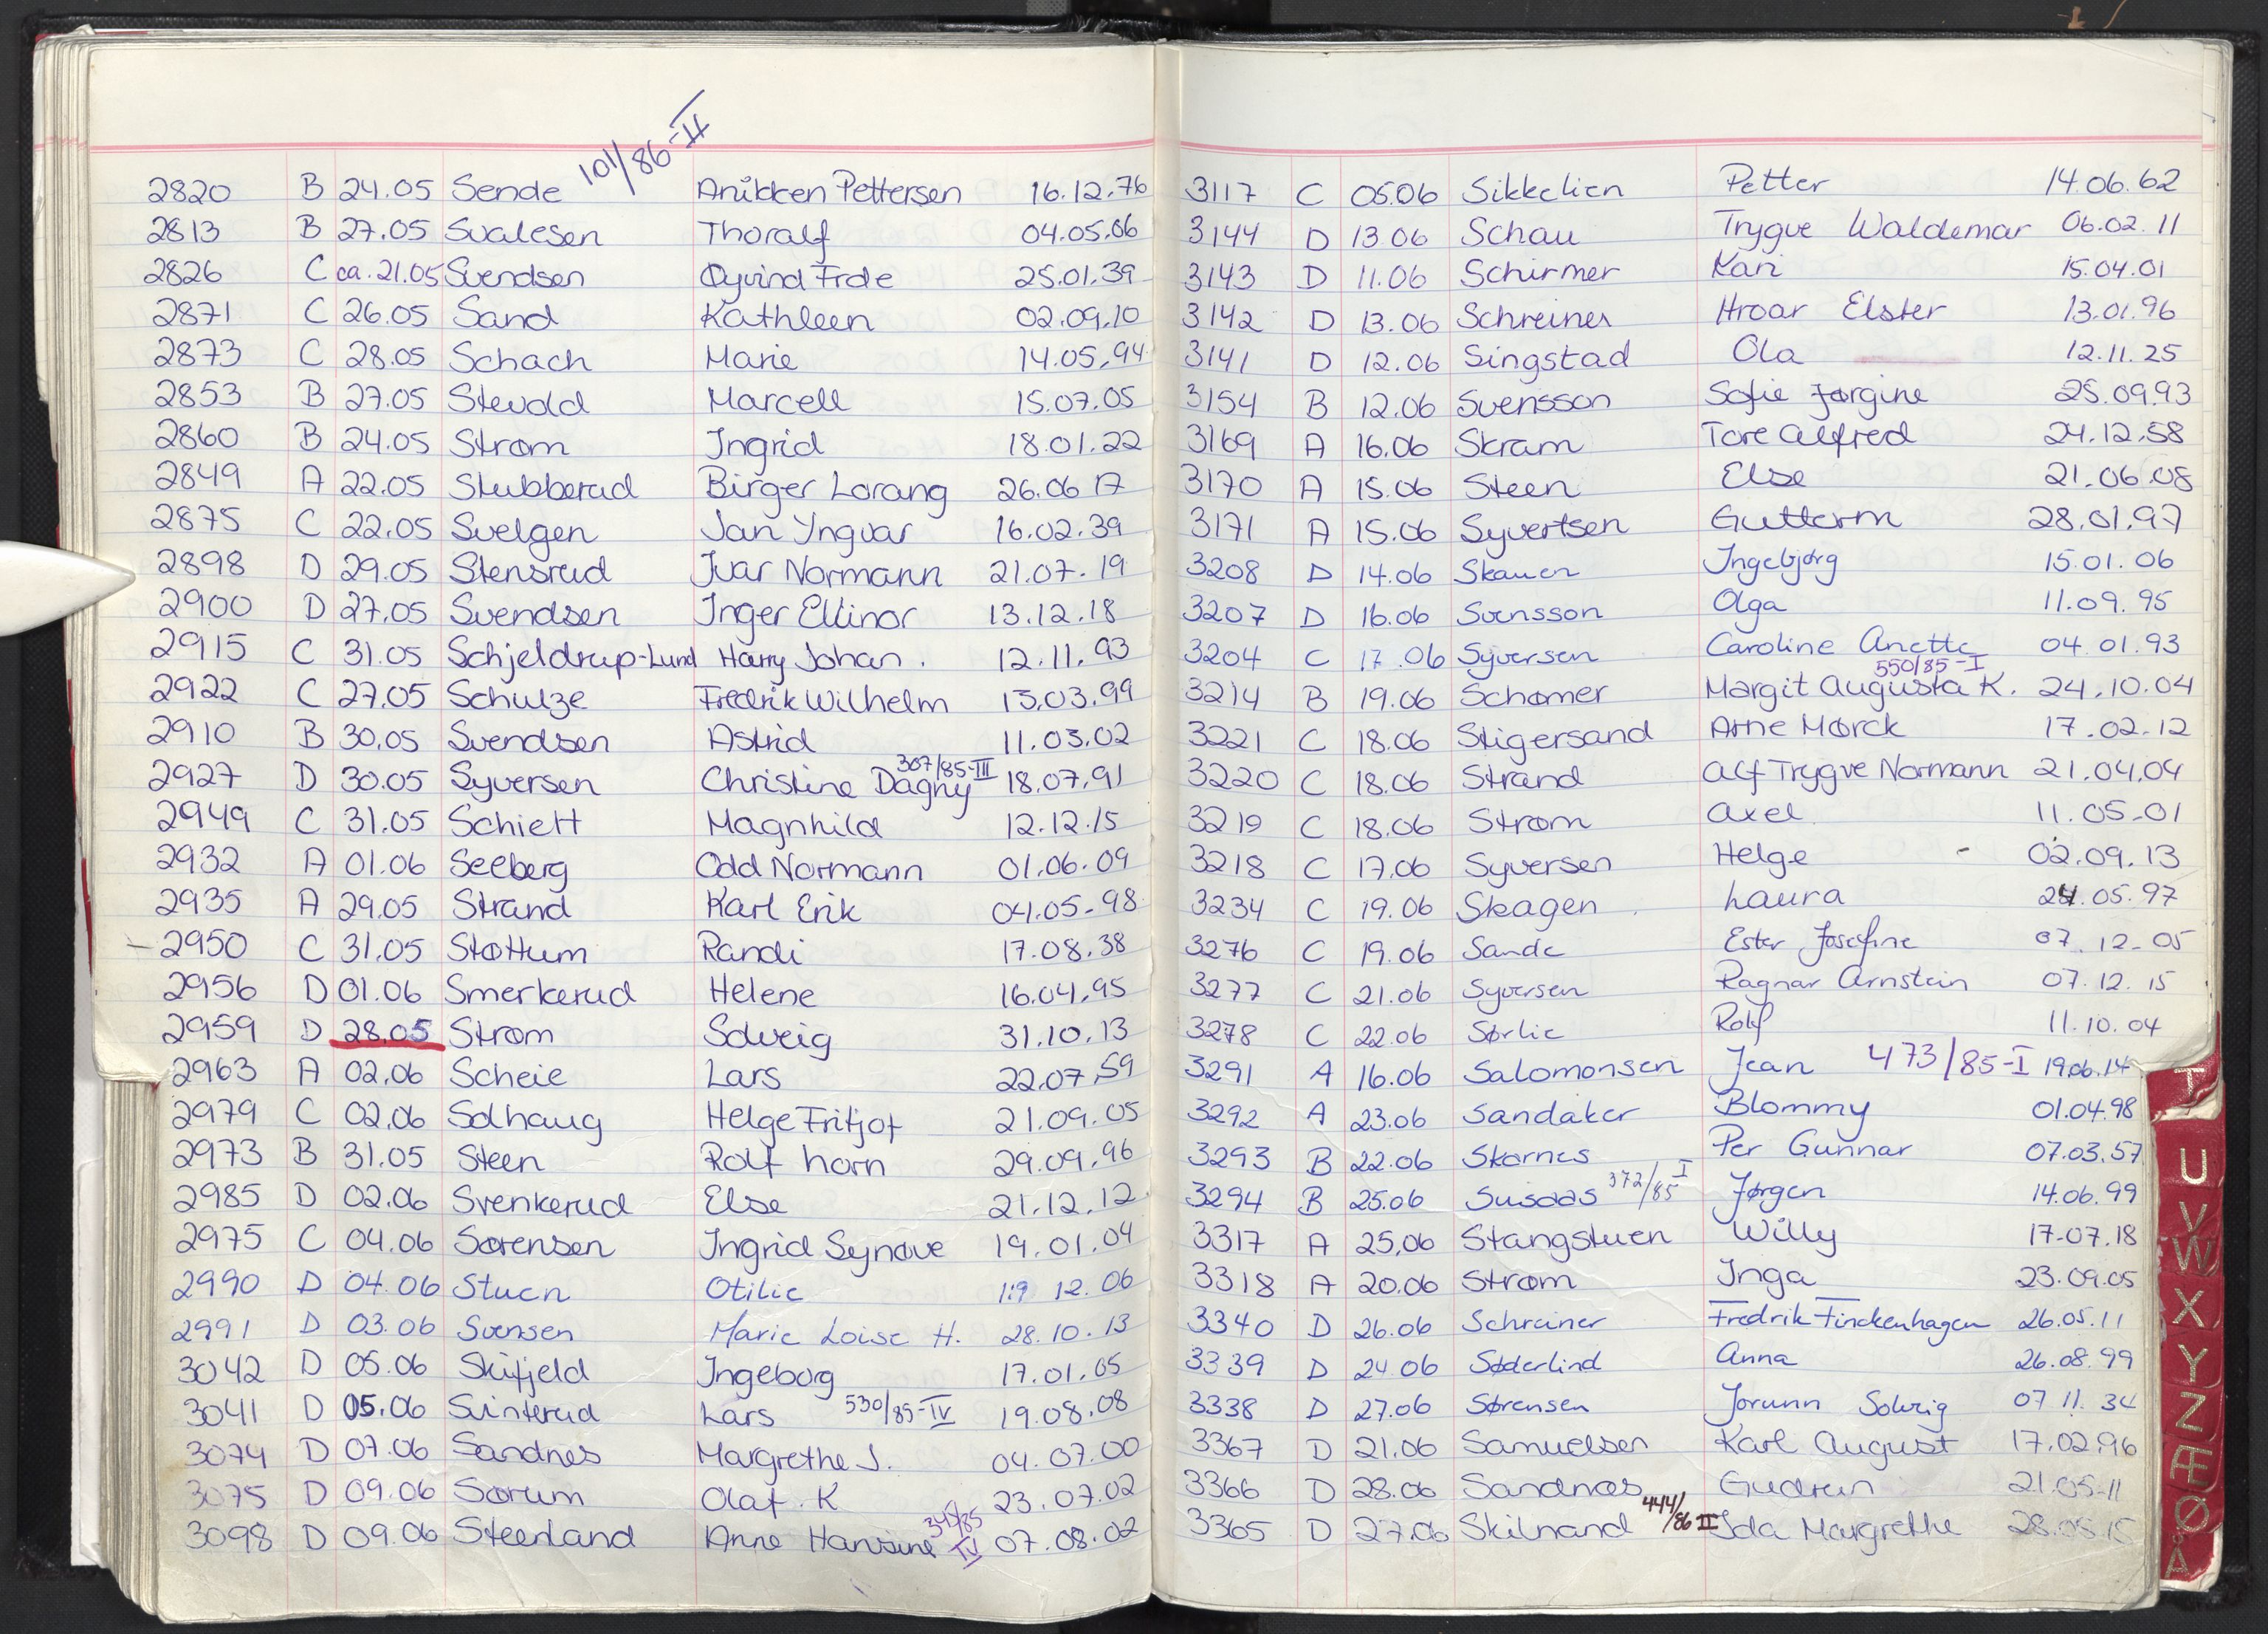 101/86-II
2820 B 24.05 Sende Anikken Pettersen 16.12.76
2813 B 27.05 Svalesen Thoralf 04.05.06
2826 C ca. 21.05 Svendsen Øyvind Frde 25.01.39
2871 C 26.05 Sand Kathleen 02.09.10
2873 C 28.05 Schach Marie 14.05.94
2853 B 27.05 Stevold Marcell 15.07.05
2860 B 24.05 Strøm Ingrid 18.01.22
2849 A 22.05 Stubberud Birger Lorang 26.06 17
2875 C 22.05 Svelgen Jan Yngvar 16.02.39
2898 D 29.05 Stensrud Ivar Normann 21.07.19
2900 D 27.05 Svendsen Inger Ellinor 13.12.18
2915 C 31.05 Schjeldrup-Lund Harry Johan. 12.11.93
2922 C 27.05 Schulze Fredrik Wilhelm 13.03.99
2910 B 30.05 Svendsen Astrid 11.03.02
307/85-III
2927 D 30.05 Syversen Christine Dagny 18.07.91
2949 C 31.05 Schiett Magnhild 12.12.15
2932 A 01.06 Seeberg Odd Normann 01.06.09
2935 A 29.05 Strand Karl Erik 04.05.98
2950 C 31.05 Støttum Randi 17.08.38
2956 D 01.06 Smerkerud Helene 16.04.95
2959 D 28.05 Strøm Solveig 31.10.13
2963 A 02.06 Scheie Lars 22.07.59
2979 C 02.06 Solhaug Helge Fritjof 21.09.05
2973 B 31.05 Steen Rolf horn 29.09.96
2985 D 02.06 Svenkerud Else 21.12.12
2975 C 04.06 Sørensen Ingrid Synøve 19.01.04
2990 D 04.06 Stuen Otilie 12.06
2991 D 03.06 Svensen Marie Loise H. 28.10.13
3042 D 05.06 Skifjeld Ingeborg 17.01.05
3041 D 05.06 Svinterud Lars 530/85-IV 19.08.08
3074 D 07.06 Sandnes Margrethe J. 04.07.00
3075 D 09.06 Sørum Olaf. K 23.07.02
3098 D 09.06 Steenland Anne Hansine IV 07.08.02
3117 C 05.06 Sikkelien Petter 14.06.62
3144 D 13.06 Schau Trygve Waldemar 06.02.11
3143 D 11.06 Schirmer Kari 15.04.01
3142 D 13.06 Schreiner Hroar Elster 13.01.96
3141 D 12.06 Singstad Ola 12.11.25
3154 B 12.06 Svensson Sofie Jørgine 25.09.93
3169 A 16.06 Skram Tore Alfred 24.12.58
3170 A 15.06 Steen Else 21.06.08
3171 A 15.06 Syvertsen Guttorm 28.01.97
3208 D 14.06 Skauen Ingebjørg 15.01.06
3207 D 16.06 Svensson Olga 11.09.95
3204 C 17.06 Syversen Caroline Anette 04.01.93
550/85-I
3214 B 19.06 Schømer Margit Augusta K. 24.10.04
3221 C 18.06 Stigersand Arne Mørck 17.02.12
3220 C 18.06 Strand Alf Trygve Normann 21.04.04
3219 C 18.06 Strøm Axel 11.05.01
3218 C 17.06 Syversen Helge - 02.09.13
3234 C 19.06 Skagen Laura 24.05.97
3276 C 19.06 Sande Ester Josefine 07.12.05
3277 C 21.06 Syversen Ragnar Arnstein 07.12.15
3278 C 22.06 Sørlie Rolf 11.10.04
3291 A 16.06 Salomonsen Jean 473/85-I 19.06.14
3292 A 23.06 Sandaker Blommy 01.04.98
3293 B 22.06 Skarnes Per Gunnar 07.03.57
3294 B 25.06 Susdas 372/85 I Jørgen 14.06.99
3317 A 25.06 Stangstuen Willy 17.07.18
3318 A 20.06 Strøm Inga 23.09.05
3340 D 26.06 Schreiner Fredrik Finckenhagen 26.05.11
3339 D 24.06 Søderlind Anna 26.08.99
3338 D 27.06 Sørensen Jorunn Solveig 07 11.34
3367 D 21.06 Samuelsen Karl August 17.02.96
3366 D 28.06 Sandnæs Gudrun 21.05.11
3365 D 27.06 Skilnand 444/86 II Ida Margrethe 28.05.15
T
U
V
W
X
Y
Z
Æ
Ø
Å